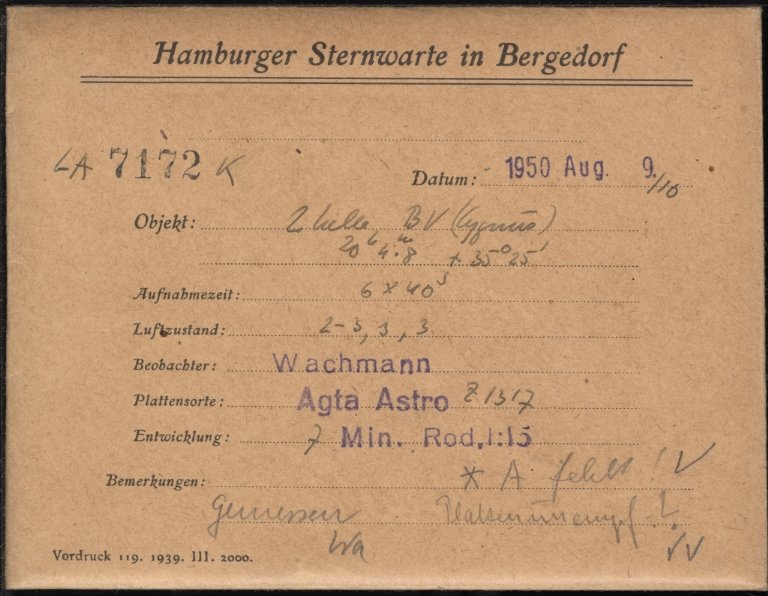 Hamburger Sternwarte in Bergedorf
LA 7172 K
Datum: 1950 Aug. 9./10
Objekt: 2 helle BV (Cygnus)
20ʰ 4ᵐ.8 + 35° 25'
Aufnahmezeit: 6 x 40ˢ
Luftzustand: 2-3, 3, 3
Beobachter: Wachmann
Plattensorte: Agfa Astro Z 1317
Entwicklung: 7 Min. Rod. 1:15
Bemerkungen: * A fehlt ! √
Gemessen
Wa √√
Vordruck 119. 1939. III. 2000.